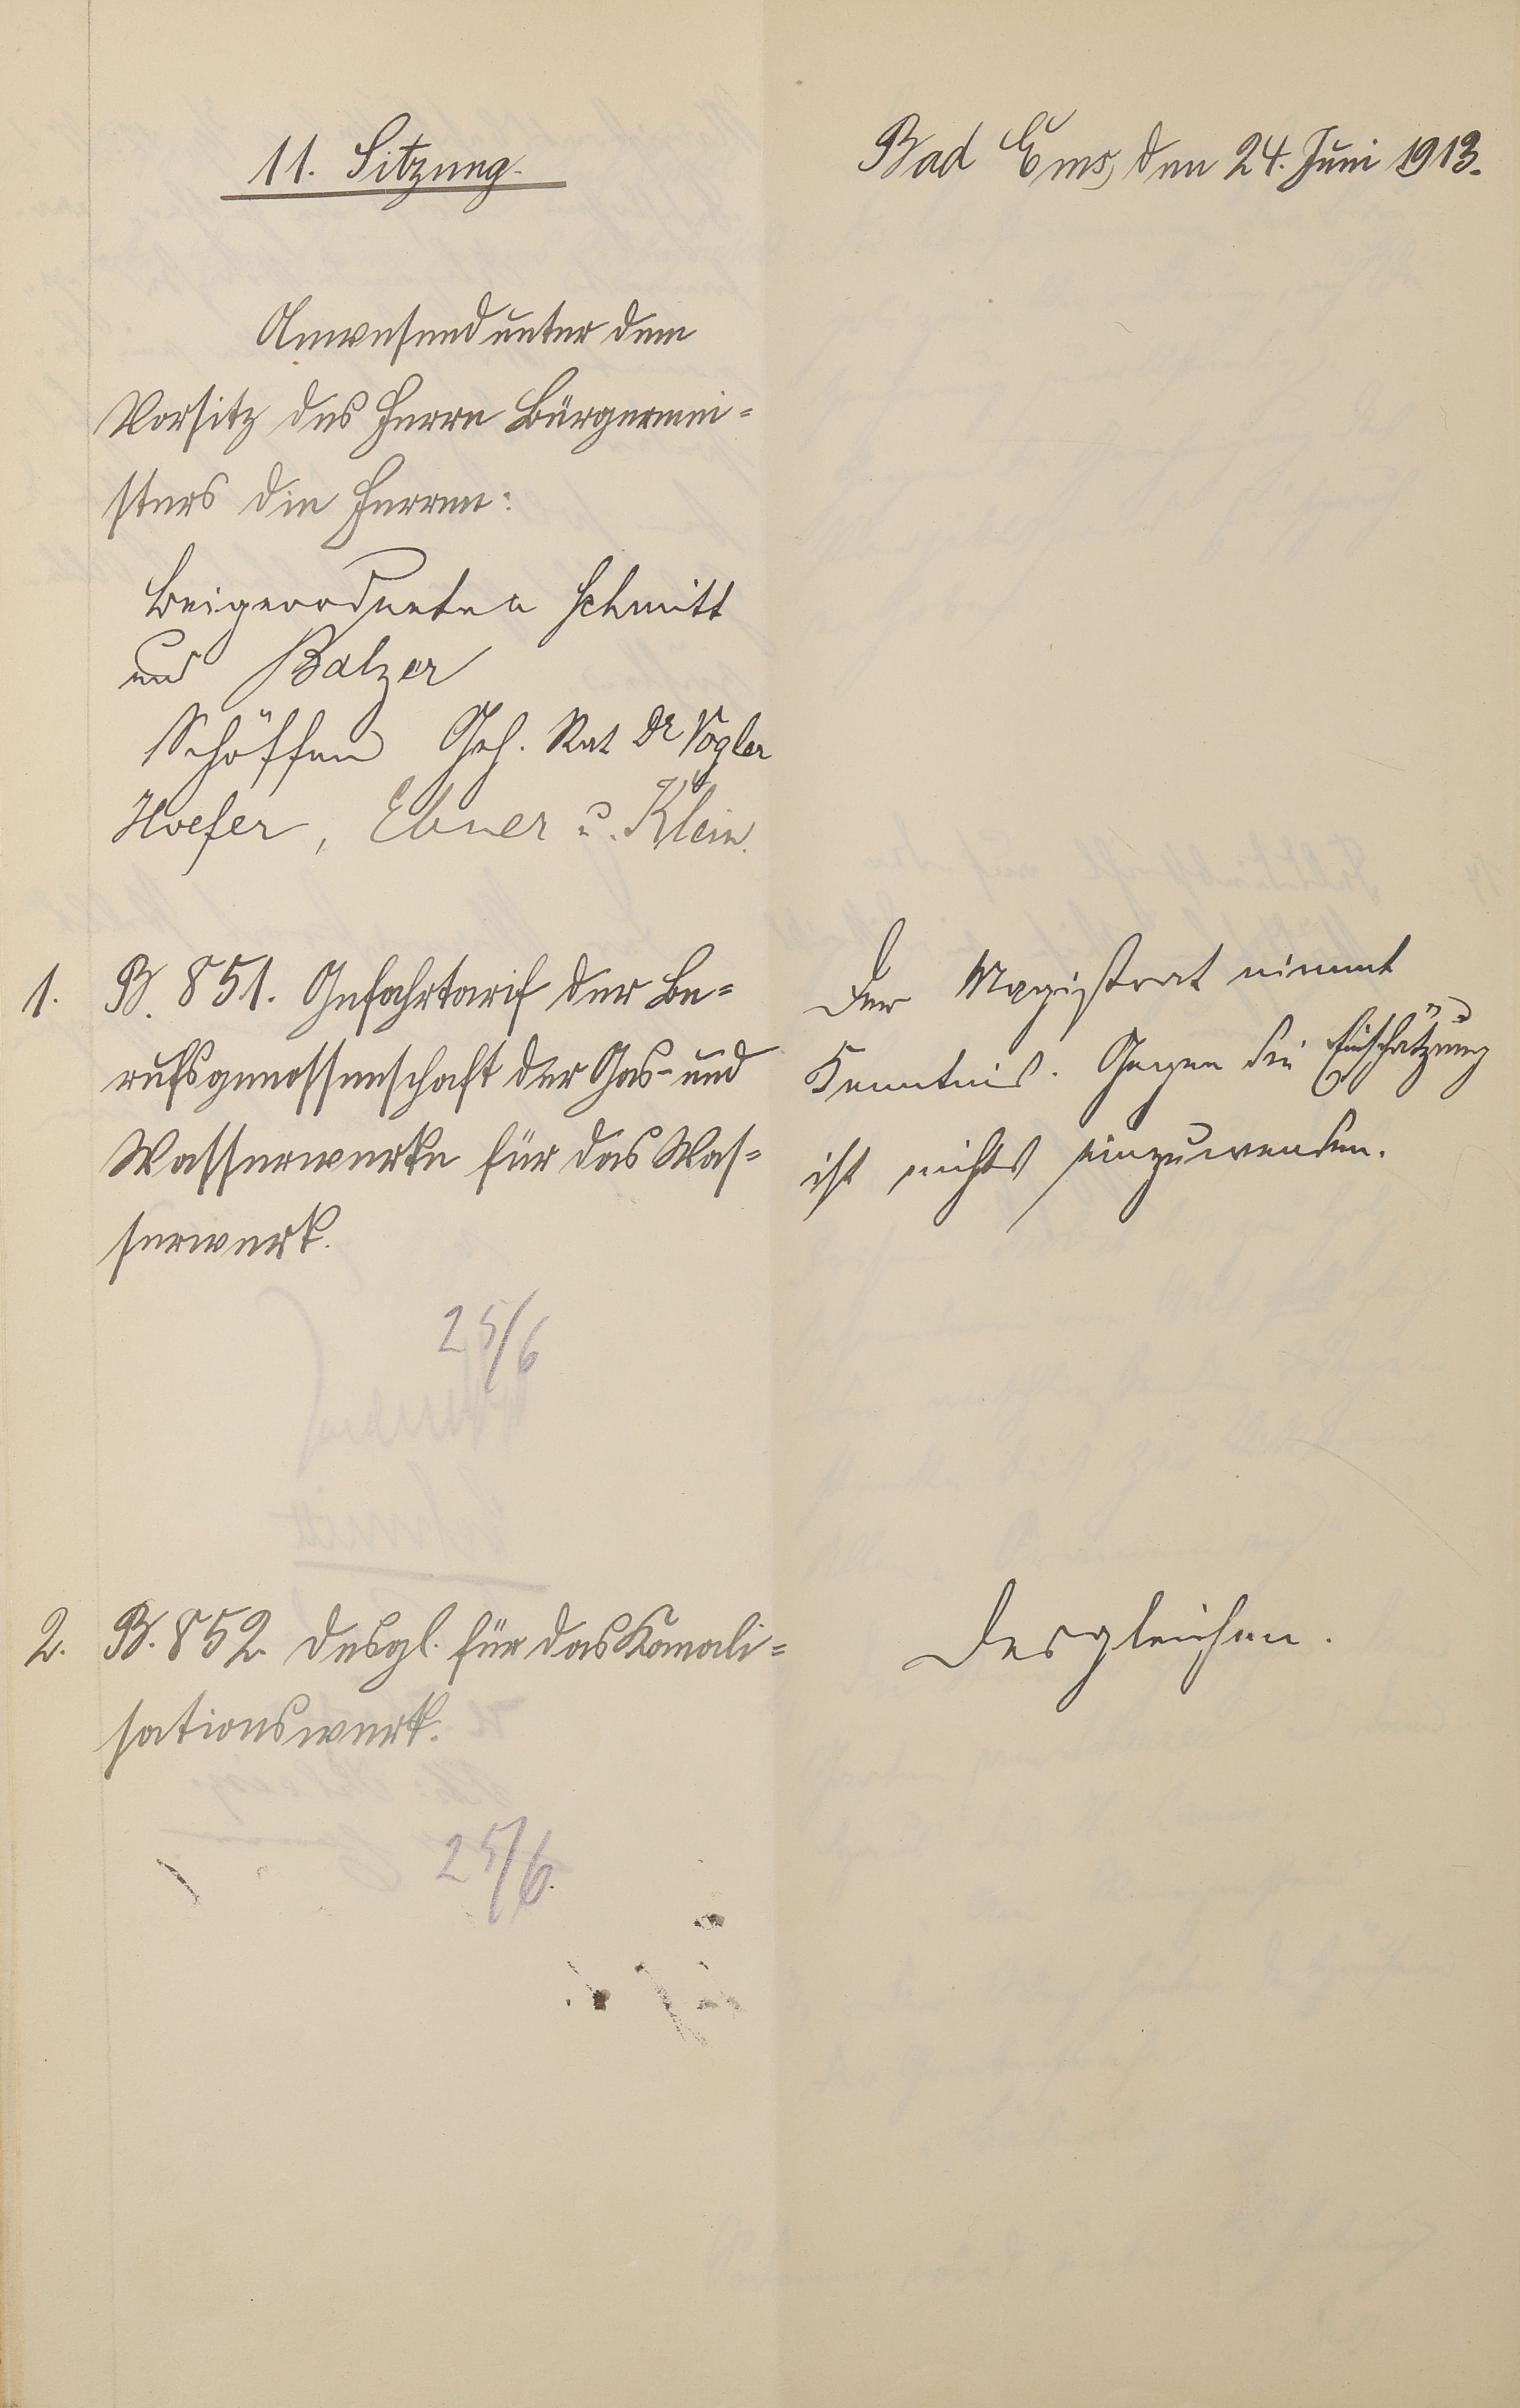 11. Sitzung.
Bad Ems, den 24. Juni 1913.
Anwesend unter dem
Vorsitz des Herrn Bürgermei=
sters die Herren:
Beigeordneten Schmitt
und Balzer
Schöffen Geh. Rat Dr Vogler
Hoefer, Ebner u. Klein.
1. B. 851. Gefahrtarif der Be=
rufsgenossenschaft der Gas- und
Wasserwerke für das Was=
serwerk.
25/6
Der Magistrat nimmt
Kenntnis. Gegen die Einschätzung
ist nichts einzuwenden.
2. B. 852. desgl. für das Kanali=
sationswerk.
25/6.
Desgleichen.